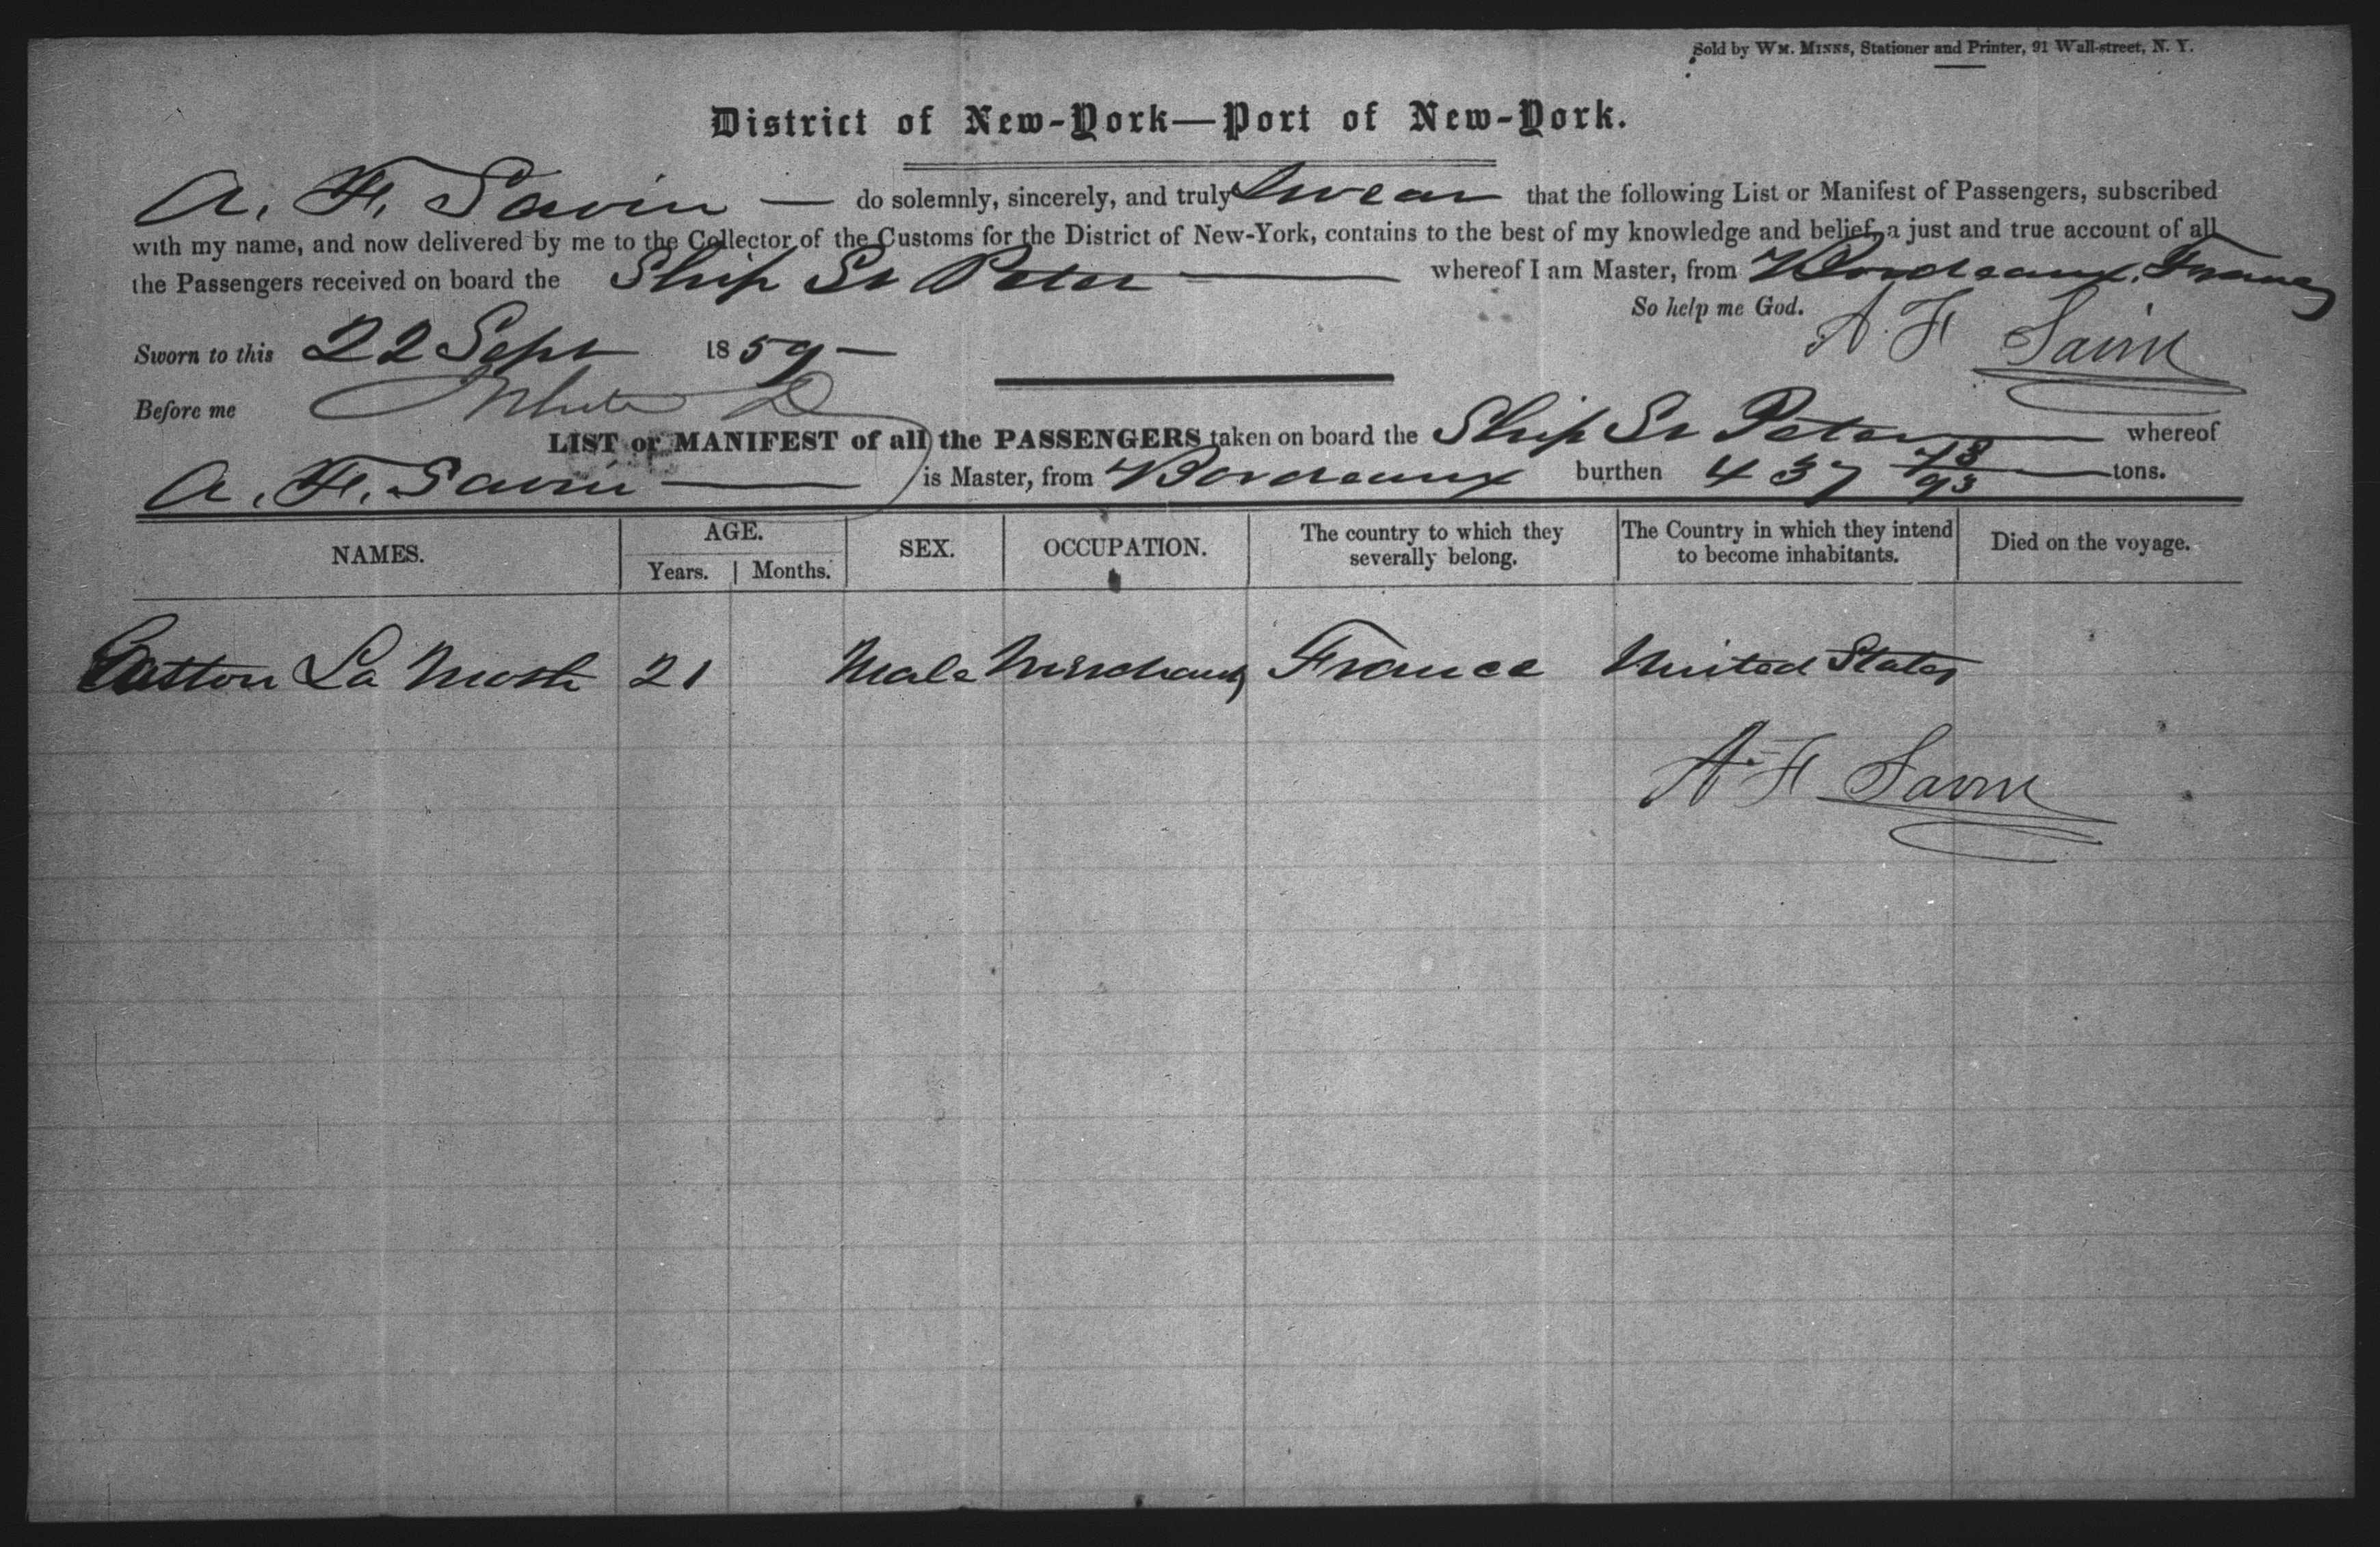 Sold by WM. MINNS, Stationer and Printer, 91 Wall-street, N. Y.
District of New-York—Port of New-York.
A. F. Savin — do solemnly, sincerely, and truly Swear that the following List or Manifest of Passengers, subscribed
with my name, and now delivered by me to the Collector of the Customs for the District of New-York, contains to the best of my knowledge and belief, a just and true account of all
the Passengers received on board the Ship St Peter — whereof I am Master, from Bordeaux, France
So help me God.
A. F Savin
Sworn to this 22 Sept 1859 —
Before me
LIST or MANIFEST of all the PASSENGERS taken on board the Ship St Peter — whereof
A. F. Savin — is Master, from Bordeaux burthen 437 73/95 — tons.
NAMES. AGE. Years. Months. SEX. OCCUPATION. The country to which they severally belong. The Country in which they intend to become inhabitants. Died on the voyage.
Gaston La 21 Male Merchant France United States
A. F Savin